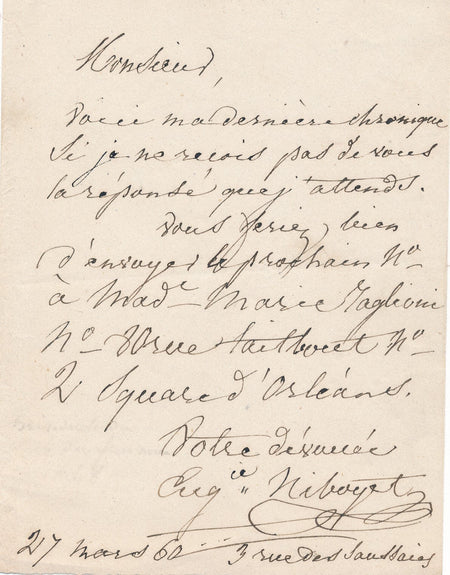 Monsieur,
Voici ma dernière chronique
Si je ne reçois pas de vous
la réponse que j'attends.
Vous feriez bien
d'envoyer le prochain No
à Made Marie Taglioni
No 80 rue Taitbout No
2 Square d'Orléans.
Votre dévouée
Eugie Niboyet
27 mars 60 3 rue des Saussaies